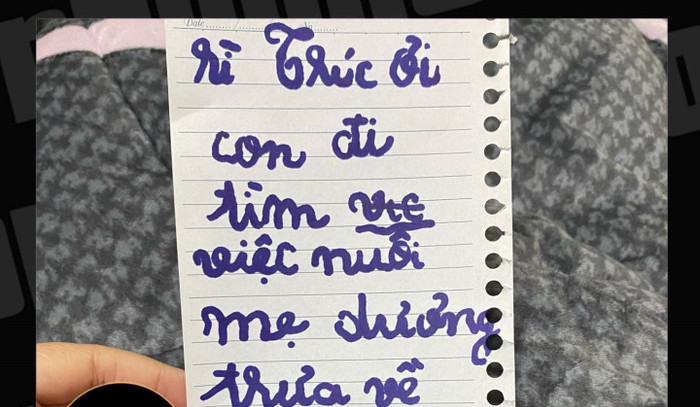 Date ........ / ........ No ........
hi Trúc ơi
con đi
tìm vtc
việc nuôi
mẹ dưỡng
trưa về